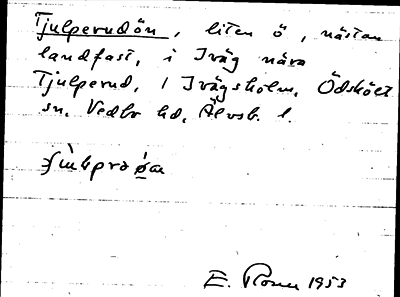 Tjulperudön, liten ö, nästan
landfast, i Iväg nära
Tjulperud, / Ivägsholm, Ödskölt
sn, Vedbo hd, Älvsb. l.
E. 1953